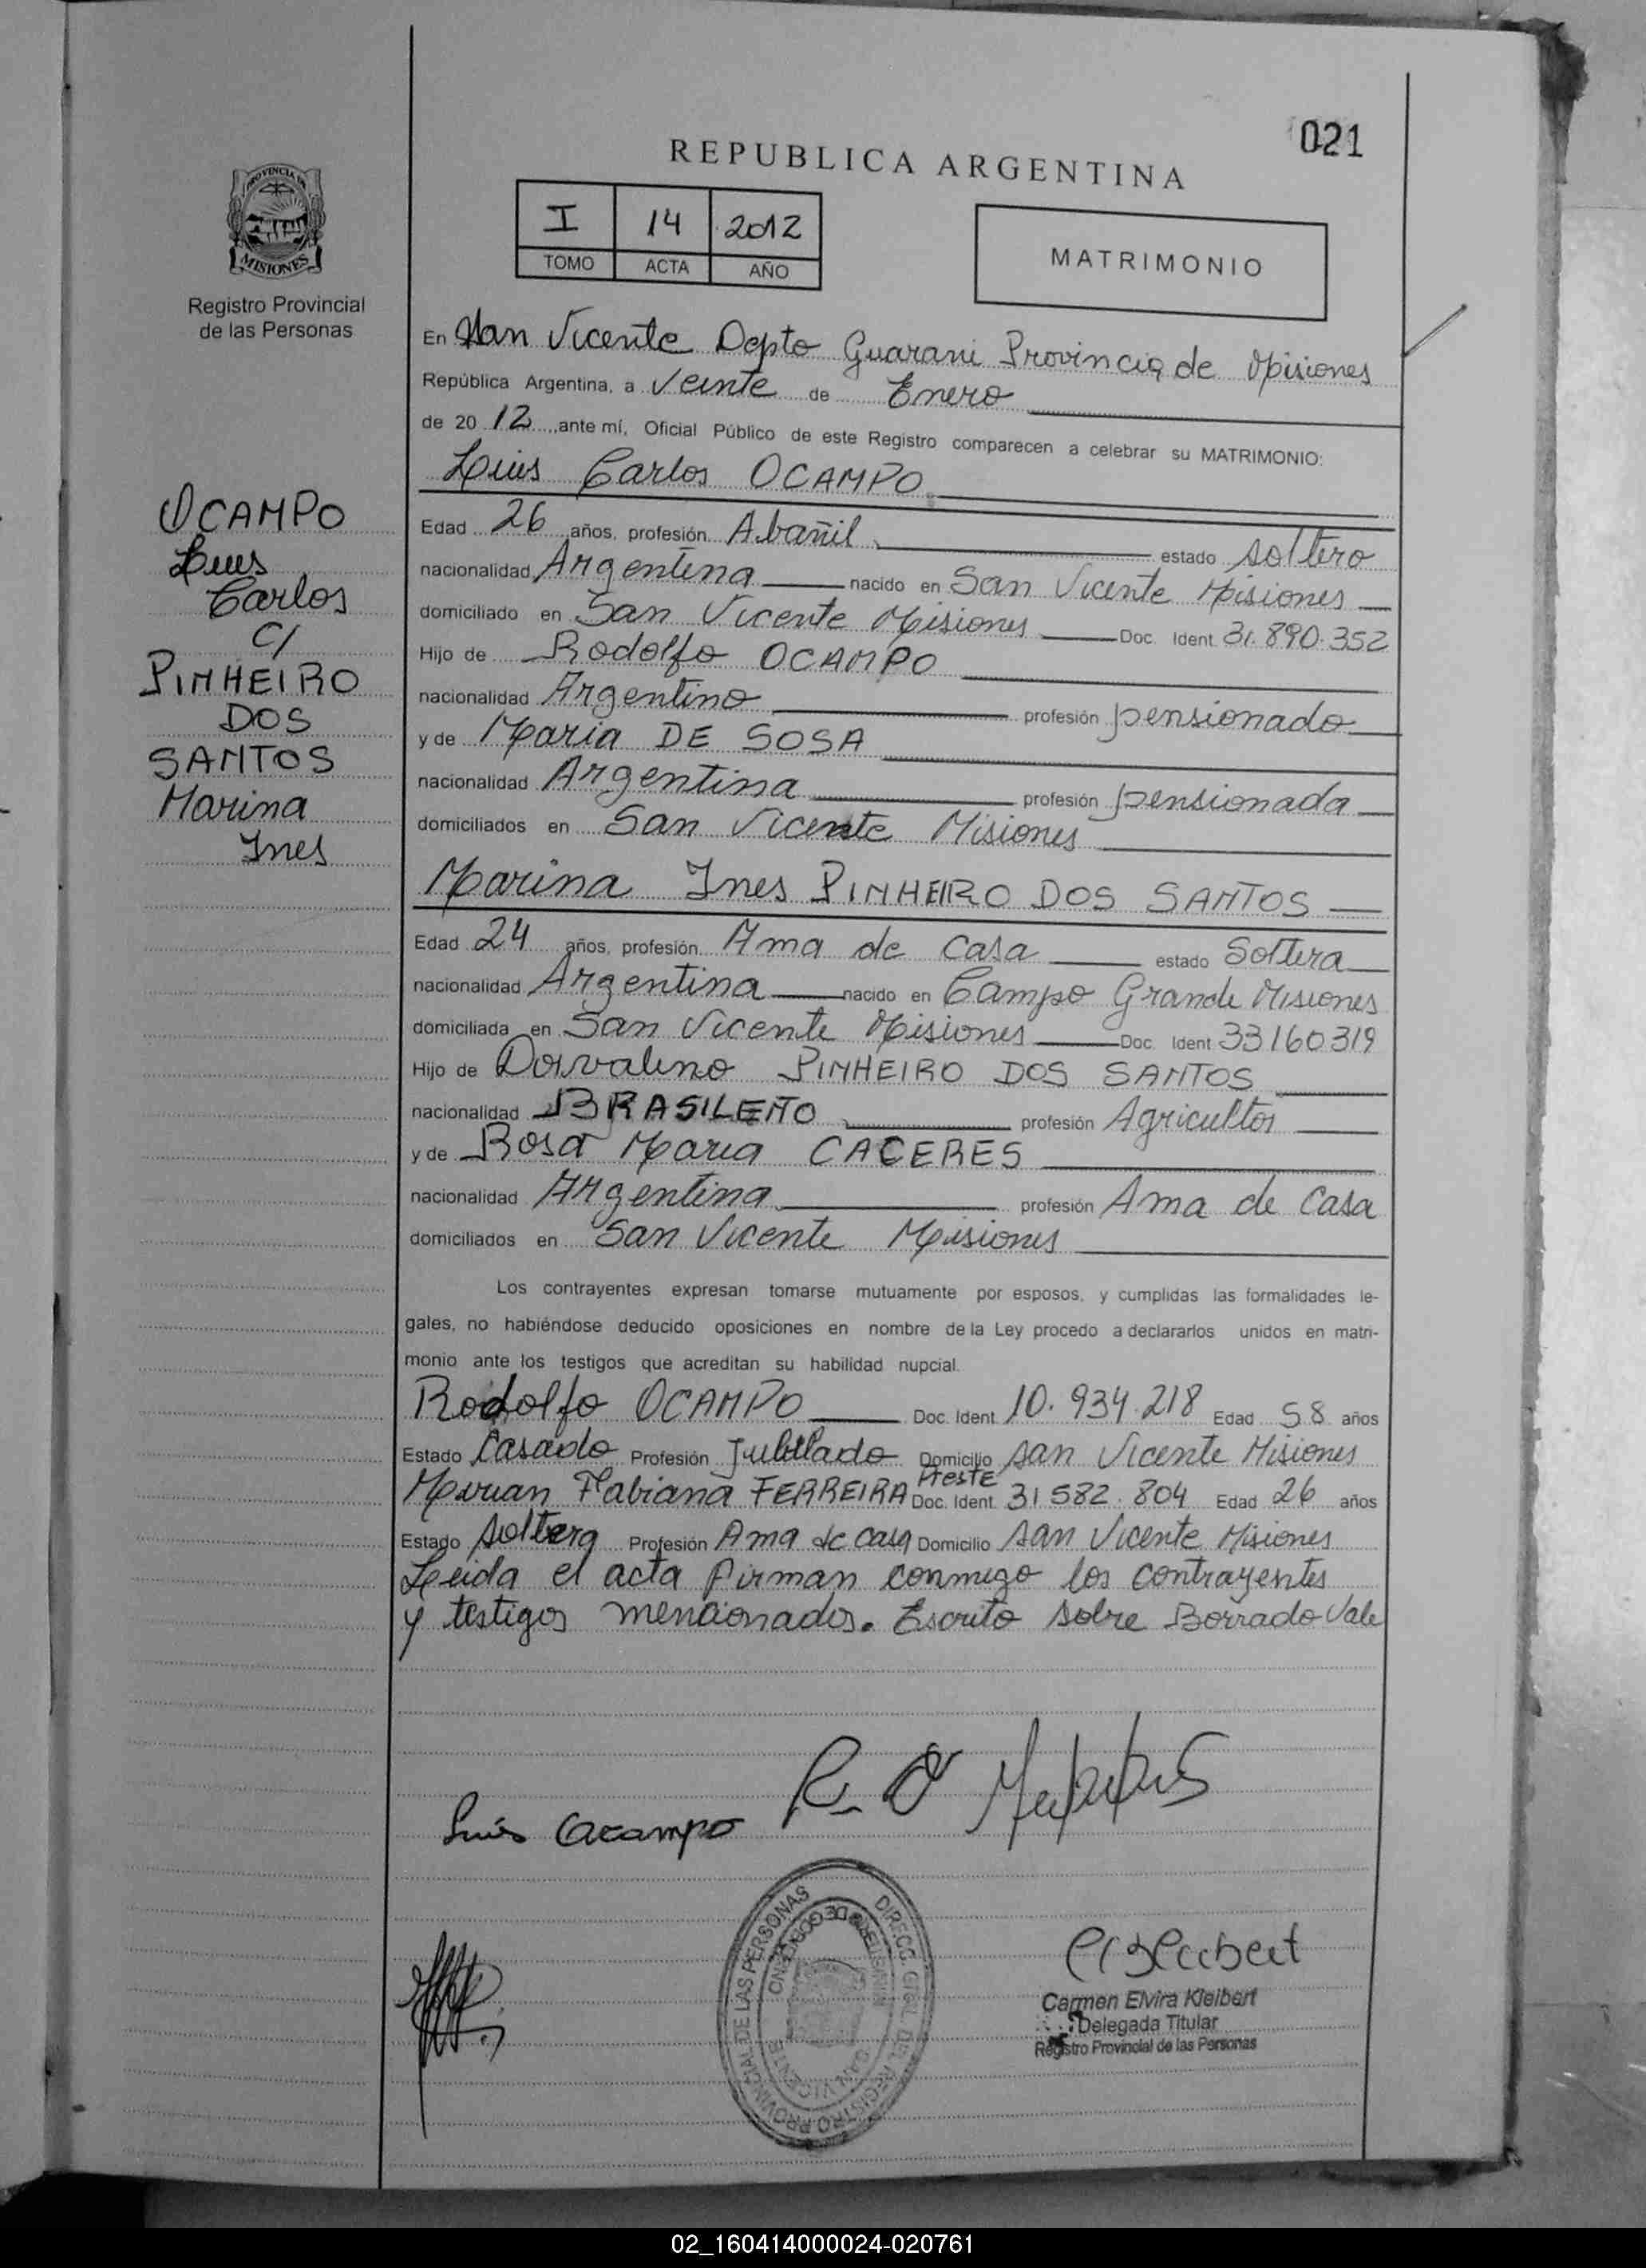 021
REPUBLICA ARGENTINA
I 14 2012
TOMO ACTA AÑO
MATRIMONIO
PROVINCIA DE
MISIONES
Registro Provincial
de las Personas
OCAMPO
Luis
Carlos
C/
PINHEIRO
DOS
SANTOS
Marina
Ines
En San Vicente Depto Guarani Provincia de Misiones
República Argentina, a Veinte de Enero
de 20 12, ante mí, Oficial Público de este Registro comparecen a celebrar su MATRIMONIO:
Luis Carlos OCAMPO
Edad 26 años, profesión Albañil estado soltero
nacionalidad Argentina nacido en San Vicente Misiones
domiciliado en San Vicente Misiones Doc. Ident. 31.890.352
Hijo de Rodolfo OCAMPO
nacionalidad Argentino profesión pensionado
y de Maria DE SOSA
nacionalidad Argentina profesión pensionada
domiciliados en San Vicente Misiones
Marina Ines PINHEIRO DOS SANTOS
Edad 24 años, profesión Ama de casa estado Soltera
nacionalidad Argentina nacido en Campo Grande Misiones
domiciliada en San Vicente Misiones Doc. Ident 33160319
Hijo de Dorvalino PINHEIRO DOS SANTOS
nacionalidad BRASILEÑO profesión Agricultor
y de Rosa Maria CACERES
nacionalidad Argentina profesión Ama de Casa
domiciliados en San Vicente Misiones
Los contrayentes expresan tomarse mutuamente por esposos, y cumplidas las formalidades le-
gales, no habiéndose deducido oposiciones en nombre de la Ley procedo a declararlos unidos en matri-
monio ante los testigos que acreditan su habilidad nupcial.
Rodolfo OCAMPO Doc. Ident. 10.934.218 Edad 58 años
Estado Casado Profesión Jubilado Domicilio San Vicente Misiones
Mirian Fabiana FERREIRA Doc. Ident. 31 582.804 Edad 26 años
Estado soltera Profesión Ama de casa Domicilio San Vicente Misiones
Leida el acta firman conmigo los contrayentes
y testigos mencionados. Escrito sobre Borrado Vale
Luis Ocampo R. O
DIRECC. GRAL. DEL REGISTRO PROVINCIAL DE LAS PERSONAS
MINISTERIO DE GOBIERNO
SAN VICENTE
Carmen Elvira Kleibert
Delegada Titular
Registro Provincial de las Personas
02_160414000024-020761